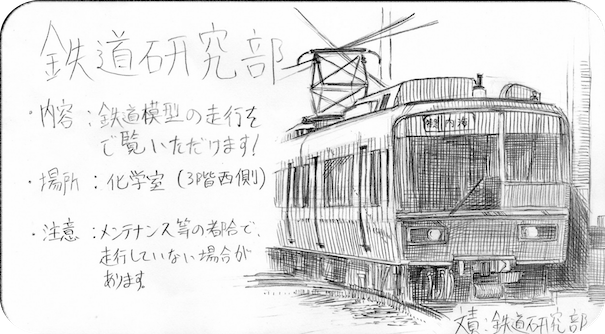 鉄道研究部
・内容：鉄道模型の走行を
ご覧いただけます！
・場所：化学室（3階西側）
・注意：メンテナンス等の都合で、
走行していない場合が
あります。
特急 内海
文責：鉄道研究部